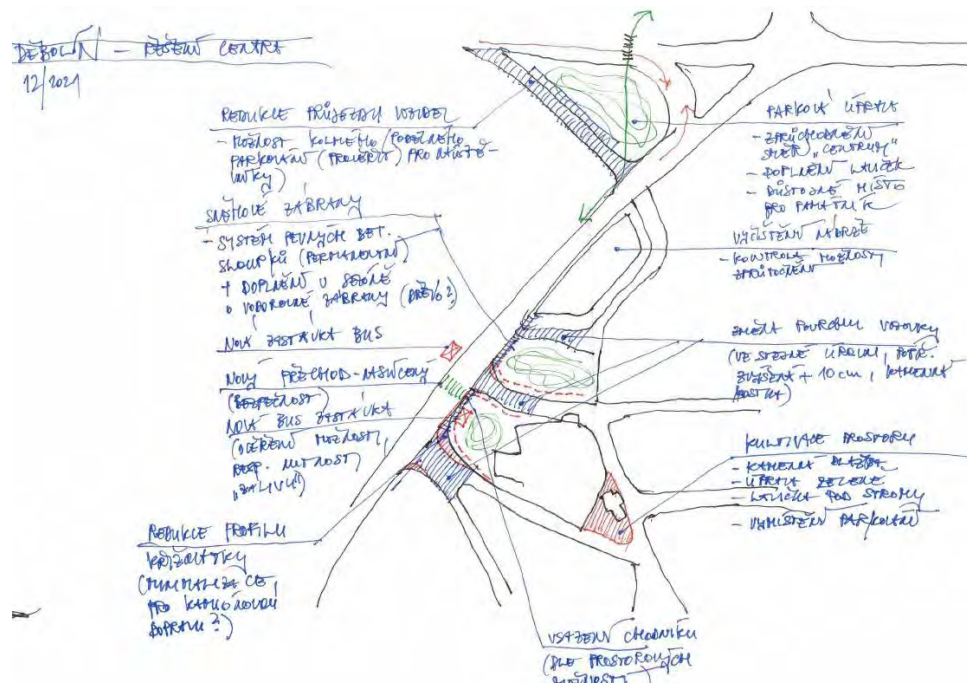 DĚBOLÍN – ŘEŠENÍ CENTRA
12/2021
REDUKCE PRŮJEZDU VOZIDEL
- MOŽNOST KOLMÉHO/PODÉLNÉHO
PARKOVÁNÍ (PROVĚŘIT) PRO NÁVŠTĚ-
VNÍKY
SNĚHOVÉ ZÁBRANY
- SYSTÉM PEVNÝCH BET.
SLOUPKŮ (PERMANENTNÍ)
+ DOPLNĚNÍ V SEZÓNĚ
O VODOROVNÉ ZÁBRANY (DŘEVO?)
NOVÁ ZASTÁVKA BUS
NOVÝ PŘECHOD - NASVÍCENÝ
(BEZPEČNOST)
NOVÁ BUS ZASTÁVKA
(OVĚŘENÍ MOŽNOSTI,
RESP. NUTNOSTI
„ZÁLIVU“)
REDUKCE PROFILU
KŘIŽOVATKY
(MINIMALIZACE,
PRO KAMIÓNOVOU
DOPRAVU?)
PARKOVÁ ÚPRAVA
- ZPRŮCHODNĚNÍ
SMĚR „CENTRUM“
- DOPLNĚNÍ LAVIČEK
- DŮSTOJNÉ MÍSTO
PRO PAMÁTNÍK
VYČIŠTĚNÍ NÁDRŽE
- KONTROLA MOŽNOSTI
ZPRŮTOČNĚNÍ
ZMĚNA POVRCHU VOZOVKY
(VE STEJNÉ ÚROVNI, POPŘ.
ZVÝŠENÁ + 10 cm, KAMENNÁ
KOSTKA)
KULTIVACE PROSTORU
- KAMENNÁ DLAŽBA
- ÚPRAVA ZELENĚ
- LAVIČKA POD STROMY
- VYMÍSTĚNÍ PARKOVÁNÍ
VSAZENÍ CHODNÍKU
(DLE PROSTOROVÝCH
MOŽNOSTÍ)